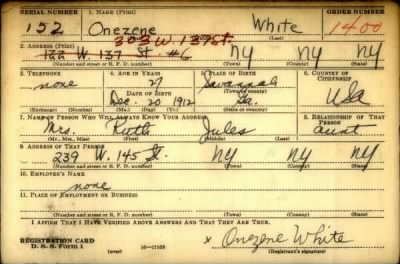 SERIAL NUMBER 1. NAME (Print) ORDER NUMBER
152 Onezene White 1400
(First) (Middle) (Last)
303 W. 137 St
2. ADDRESS (Print)
122 W. 137 St. #6 NY NY NY
(Number and street or R. F. D. number) (Town) (County) (State)
3. TELEPHONE 4. AGE IN YEARS 5. PLACE OF BIRTH 6. COUNTRY OF CITIZENSHIP
none 27 Savannah
DATE OF BIRTH (Town or county)
Dec. 20 1912 Ga. USA
(Exchange) (Number) (Mo.) (Day) (Yr.) (State or country)
7. NAME OF PERSON WHO WILL ALWAYS KNOW YOUR ADDRESS 8. RELATIONSHIP OF THAT PERSON
Mrs. Ruth Jules aunt
(Mr., Mrs., Miss) (First) (Middle) (Last)
9. ADDRESS OF THAT PERSON
239 W. 145 St. NY NY NY
(Number and street or R. F. D. number) (Town) (County) (State)
10. EMPLOYER'S NAME
none
11. PLACE OF EMPLOYMENT OR BUSINESS
(Number and street or R. F. D. number) (Town) (County) (State)
I AFFIRM THAT I HAVE VERIFIED ABOVE ANSWERS AND THAT THEY ARE TRUE.
REGISTRATION CARD x Onezene White
D. S. S. Form 1 (over) 16-17105 (Registrant's signature)